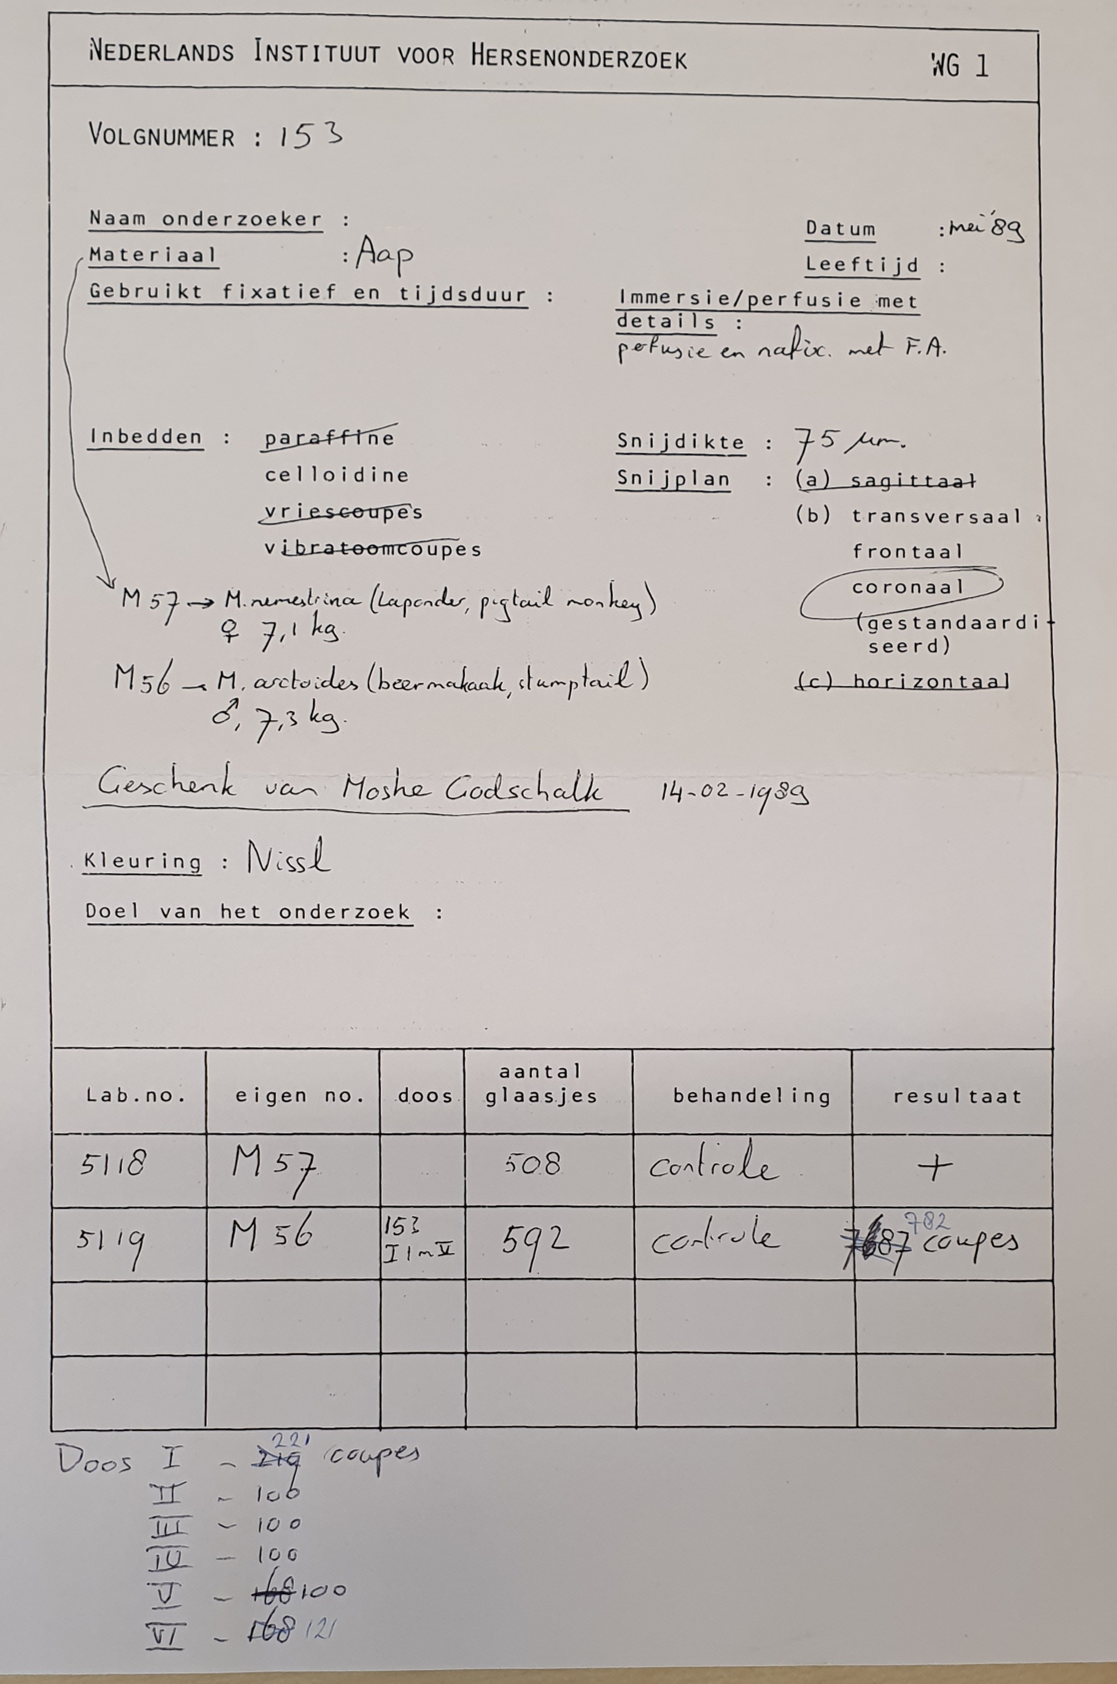 NEDERLANDS INSTITUUT VOOR HERSENONDERZOEK WG 1
VOLGNUMMER : 153
Naam onderzoeker :
Datum : mei '89
Materiaal : Aap
Leeftijd :
Gebruikt fixatief en tijdsduur :
Immersie/perfusie met
details :
perfusie en nafix. met F.A.
Inbedden : paraffine
celloidine
vriescoupes
vibratoomcoupes
Snijdikte : 75 µm.
Snijplan : (a) sagittaal
(b) transversaal
frontaal
coronaal
(gestandaardi
seerd)
(c) horizontaal
M57 → M. nemestrina (Laponder, pigtail monkey)
♀ 7,1 kg.
M56 → M. arctoides (beermakaak, stumptail)
♂, 7,3 kg.
Geschenk van Moshe Godschalk 14-02-1989
Kleuring : Nissl
Doel van het onderzoek :
Lab.no. eigen no. doos aantal glaasjes behandeling resultaat
5118 M57 508 controle +
5119 M56 153 I t/m V 592 controle 782 coupes
Doos I - 219 221 coupes
II - 100
III - 100
IV - 100
V - 168 100
VI - 168 121